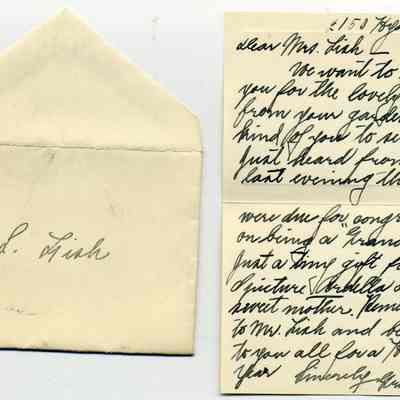 S. Fish
2150 Hys
Dear Mrs. Fish —
We want to
you for the lovely
from your garde
kind of you to se
Just heard from
last evening th
were due for congr
on being a "Grand
Just a tiny gift f
Juliette Ardella a
sweet mother. Reme
to Mr. Fish and be
to you all for a
year Sincerely